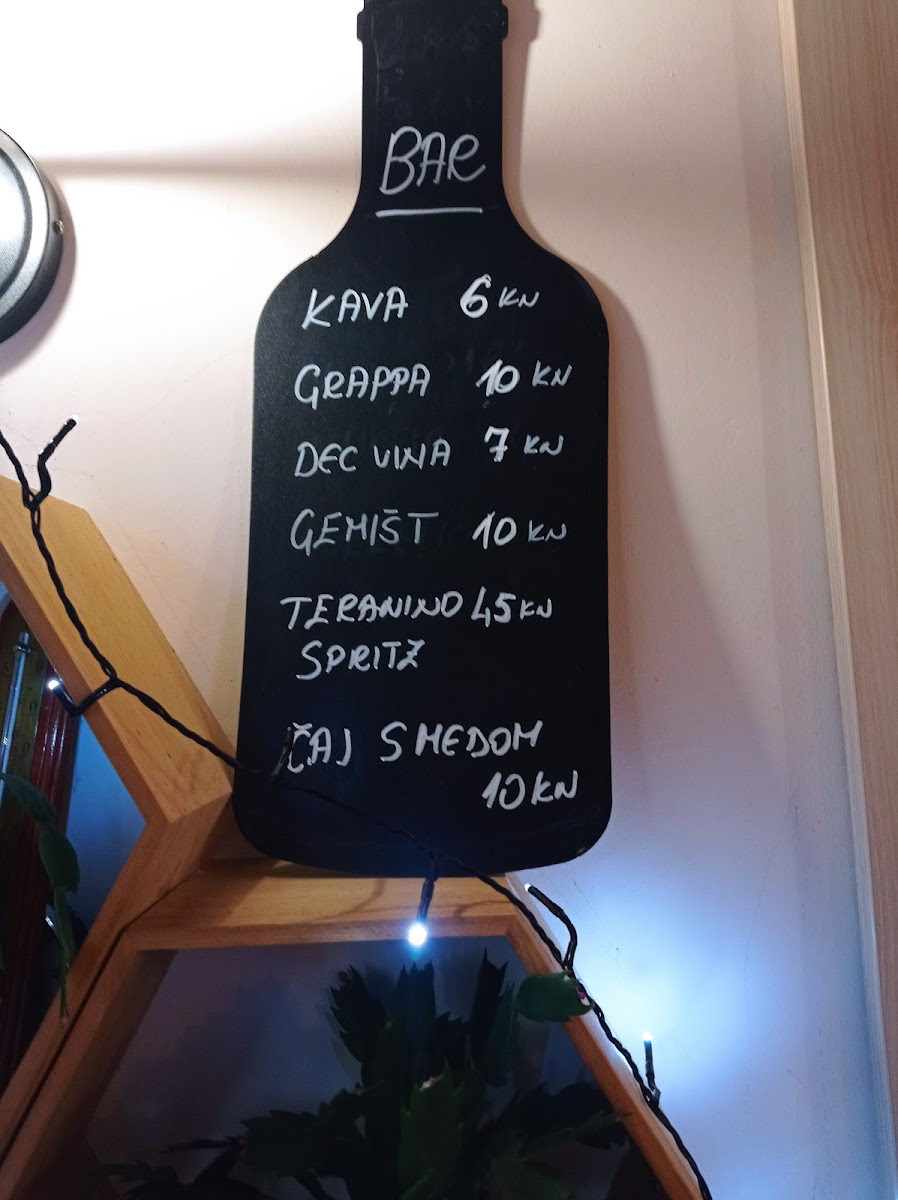 BAR
KAVA 6 KN
GRAPPA 10 KN
DEC VINA 7 KN
GEMIŠT 10 KN
TERANINO 45 KN
SPRITZ
ČAJ S MEDOM
10 KN